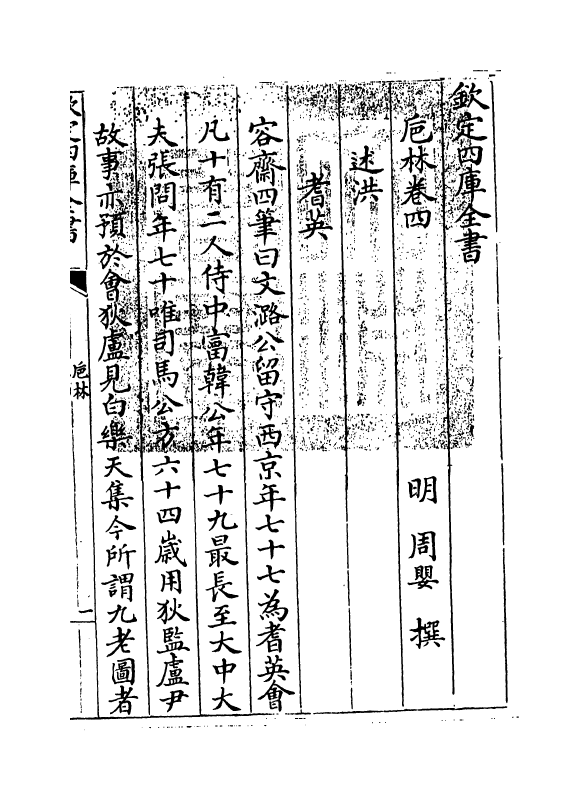 欽定四庫全書
巵林卷四
明 周嬰 撰
述洪
耆英
容齋四筆曰文潞公留守西京年七十七為耆英會
凡十有二人侍中富韓公年七十九最長至大中大
夫張問年七十唯司馬公方六十四歲用狄監盧尹
故事亦預於會狄盧見白樂天集今所謂九老圖者
欽定四庫全書
巵林
一